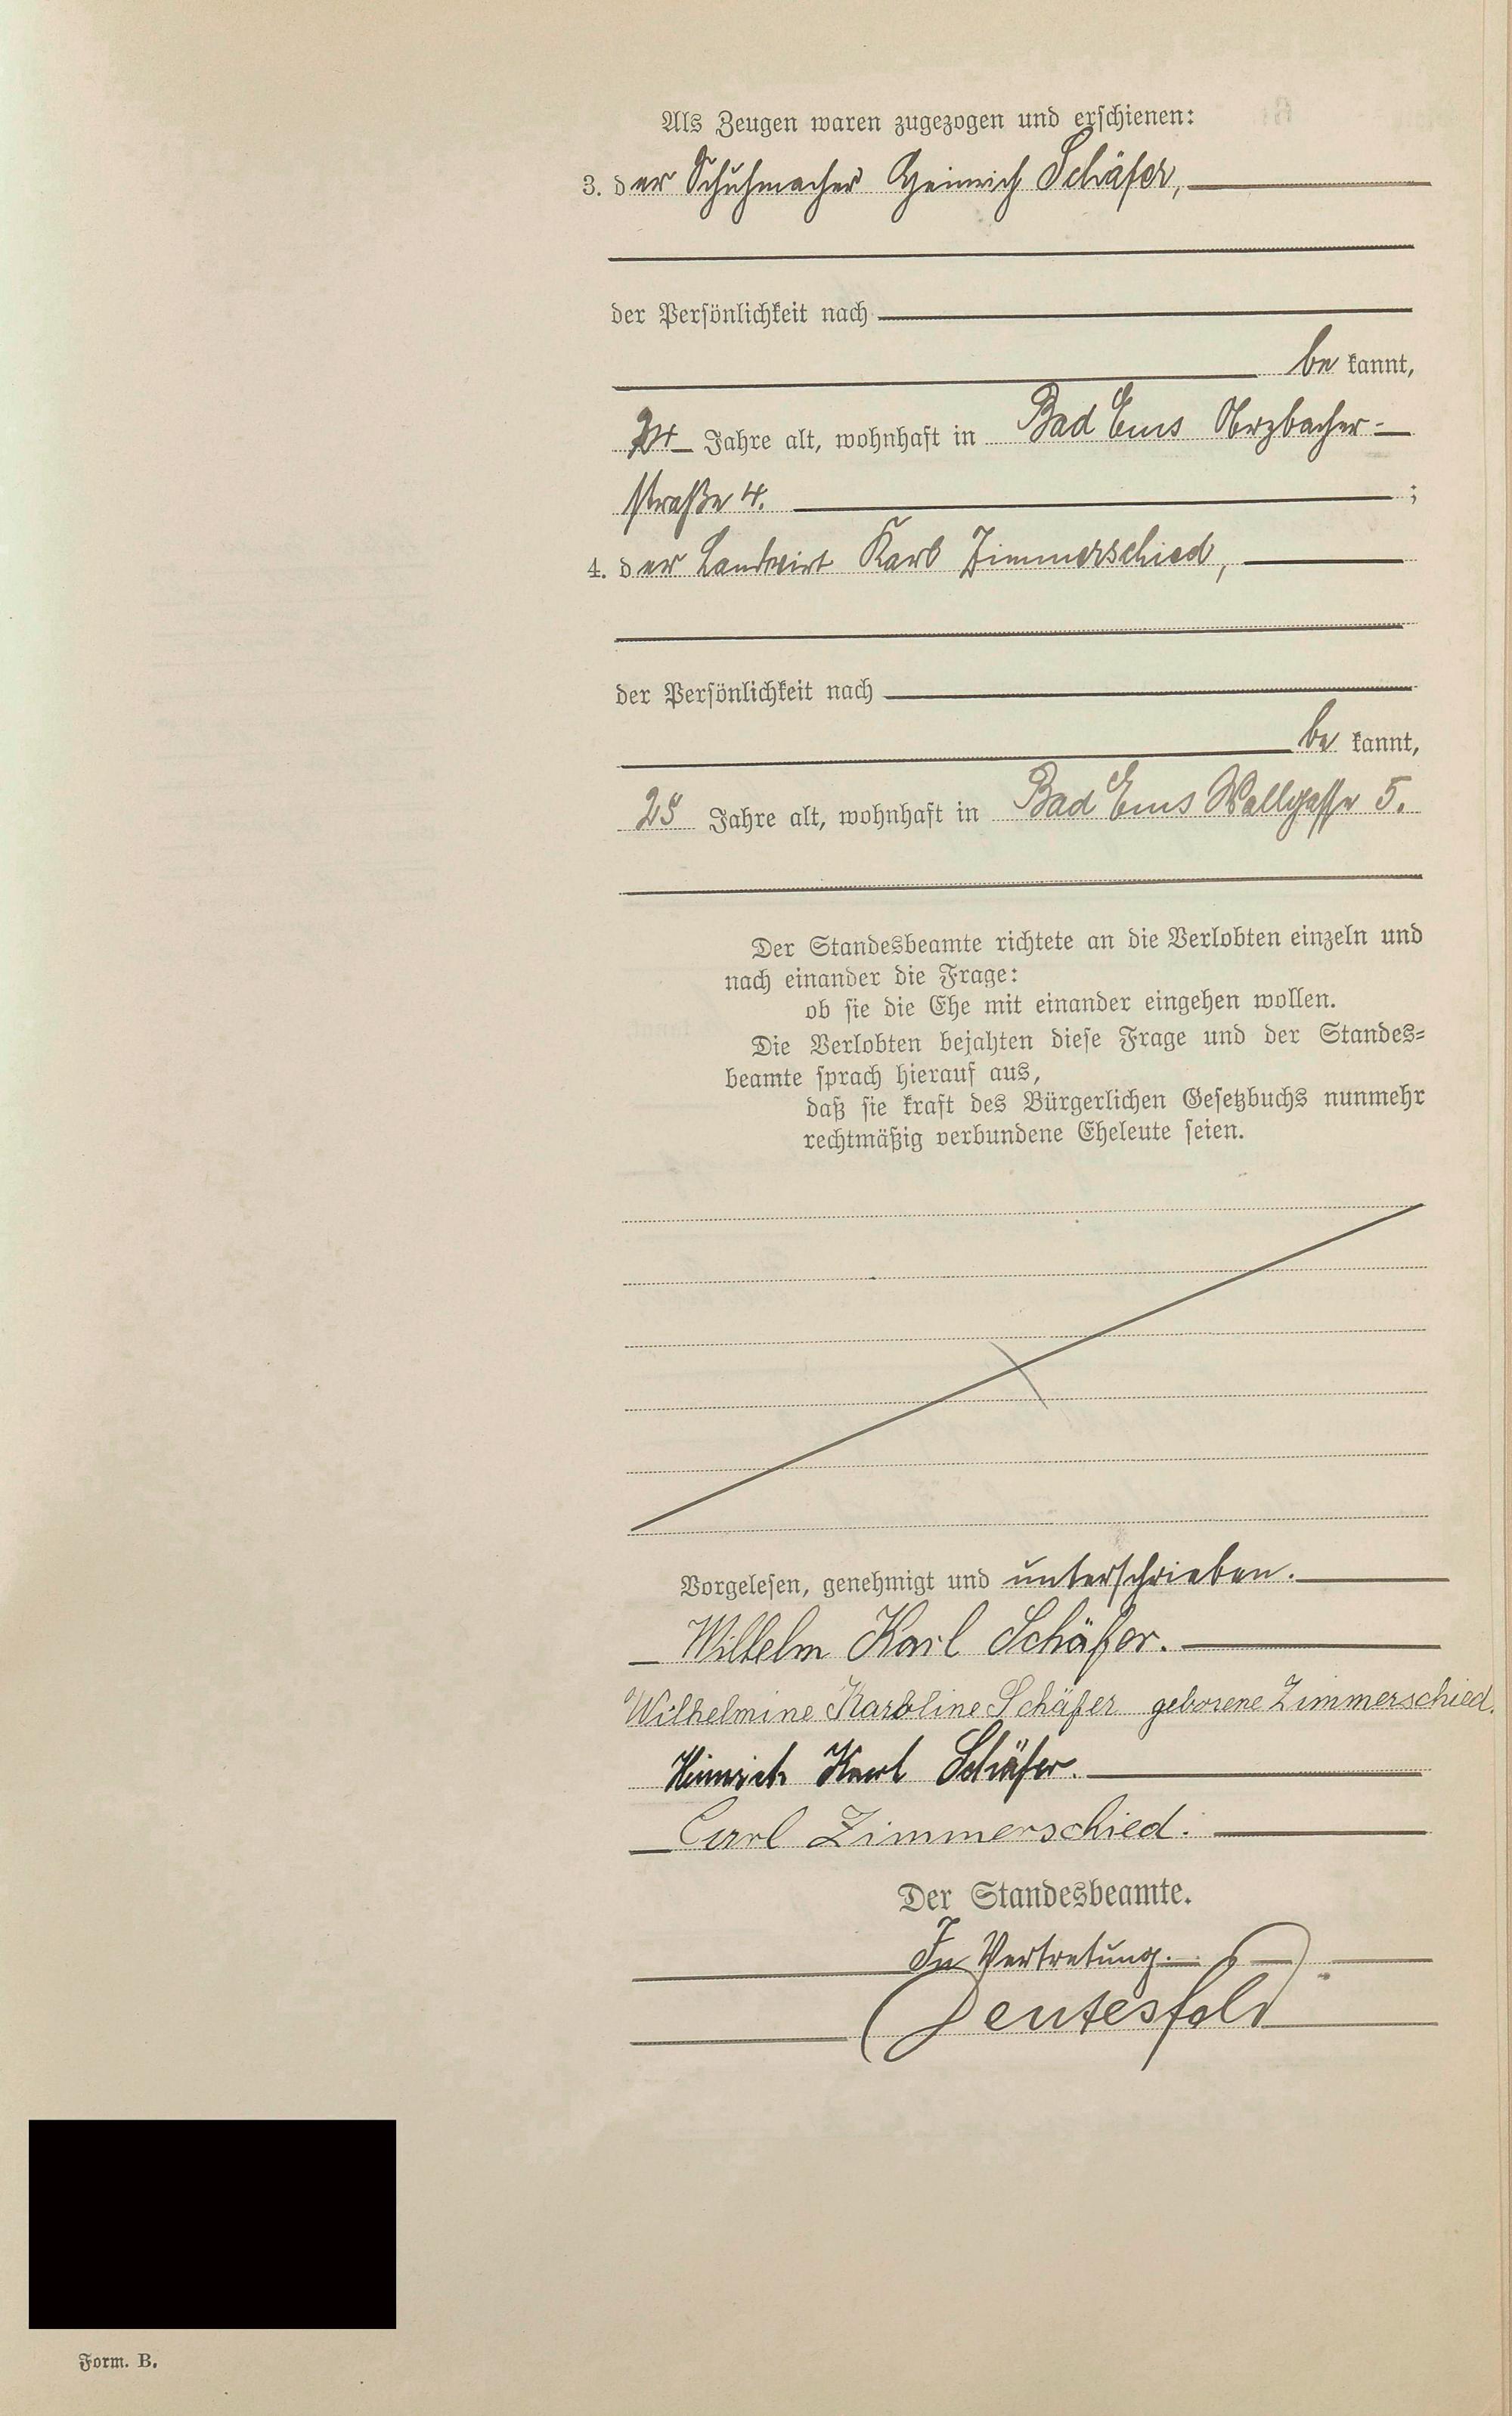 Als Zeugen waren zugezogen und erschienen:
3. der Schuhmacher Heinrich Schäfer,
der Persönlichkeit nach
be kannt,
24 Jahre alt, wohnhaft in Bad Ems
straße 4. ;
4. der Landwirt Karl Zimmerschied,
der Persönlichkeit nach
be kannt,
25 Jahre alt, wohnhaft in Bad Ems Wallgasse 5.
Der Standesbeamte richtete an die Verlobten einzeln und
nach einander die Frage:
ob sie die Ehe mit einander eingehen wollen.
Die Verlobten bejahten diese Frage und der Standes=
beamte sprach hierauf aus,
daß sie kraft des Bürgerlichen Gesetzbuchs nunmehr
rechtmäßig verbundene Eheleute seien.
Vorgelesen, genehmigt und unterschrieben.
Wilhelm Karl Schäfer.
Wilhelmine Karoline Schäfer geborene Zimmerschied.
Heinrich Karl Schäfer.
Carl Zimmerschied.
Der Standesbeamte.
In Vertretung.
Form. B.